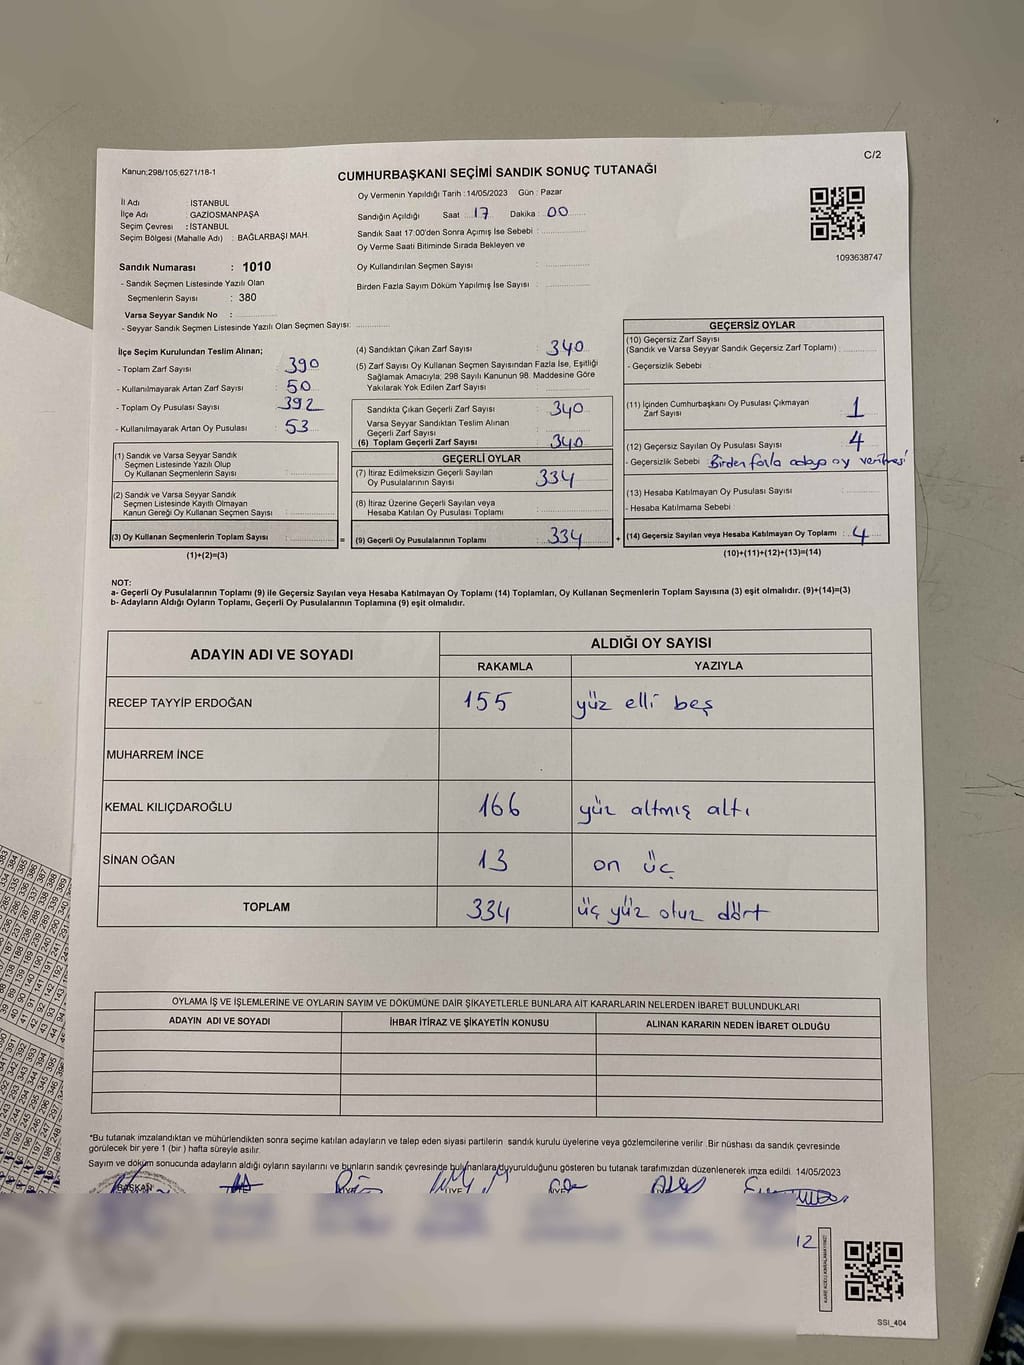 Kanun:298/105;6271/18-1
C/2
CUMHURBAŞKANI SEÇİMİ SANDIK SONUÇ TUTANAĞI
İl Adı : İSTANBUL
İlçe Adı : GAZİOSMANPAŞA
Seçim Çevresi : İSTANBUL
Seçim Bölgesi (Mahalle Adı) : BAĞLARBAŞI MAH.
Sandık Numarası : 1010
- Sandık Seçmen Listesinde Yazılı Olan
Seçmenlerin Sayısı : 380
Varsa Seyyar Sandık No :
- Seyyar Sandık Seçmen Listesinde Yazılı Olan Seçmen Sayısı:
Oy Vermenin Yapıldığı Tarih : 14/05/2023 Gün : Pazar
Sandığın Açıldığı Saat 17 Dakika : 00
Sandık Saat 17:00'den Sonra Açımış İse Sebebi :
Oy Verme Saati Bitiminde Sırada Bekleyen ve
Oy Kullandırılan Seçmen Sayısı :
Birden Fazla Sayım Döküm Yapılmış İse Sayısı :
1093638747
İlçe Seçim Kurulundan Teslim Alınan;
- Toplam Zarf Sayısı : 390
- Kullanılmayarak Artan Zarf Sayısı : 50
- Toplam Oy Pusulası Sayısı : 392
- Kullanılmayarak Artan Oy Pusulası : 53
(1) Sandık ve Varsa Seyyar Sandık
Seçmen Listesinde Yazılı Olup
Oy Kullanan Seçmenlerin Sayısı :
(2) Sandık ve Varsa Seyyar Sandık
Seçmen Listesinde Kayıtlı Olmayan
Kanun Gereği Oy Kullanan Seçmen Sayısı :
(3) Oy Kullanan Seçmenlerin Toplam Sayısı : =
(1)+(2)=(3)
(4) Sandıktan Çıkan Zarf Sayısı : 340
(5) Zarf Sayısı Oy Kullanan Seçmen Sayısından Fazla İse, Eşitliği
Sağlamak Amacıyla; 298 Sayılı Kanunun 98. Maddesine Göre
Yakılarak Yok Edilen Zarf Sayısı :
Sandıkta Çıkan Geçerli Zarf Sayısı : 340
Varsa Seyyar Sandıktan Teslim Alınan
Geçerli Zarf Sayısı :
(6) Toplam Geçerli Zarf Sayısı : 340
GEÇERLİ OYLAR
(7) İtiraz Edilmeksizin Geçerli Sayılan
Oy Pusulalarının Sayısı : 334
(8) İtiraz Üzerine Geçerli Sayılan veya
Hesaba Katılan Oy Pusulası Toplamı :
(9) Geçerli Oy Pusulalarının Toplamı : 334 +
GEÇERSİZ OYLAR
(10) Geçersiz Zarf Sayısı
(Sandık ve Varsa Seyyar Sandık Geçersiz Zarf Toplamı) :
- Geçersizlik Sebebi :
(11) İçinden Cumhurbaşkanı Oy Pusulası Çıkmayan
Zarf Sayısı : 1
(12) Geçersiz Sayılan Oy Pusulası Sayısı : 4
- Geçersizlik Sebebi : Birden fazla adaya oy verilmesi
(13) Hesaba Katılmayan Oy Pusulası Sayısı :
- Hesaba Katılmama Sebebi :
(14) Geçersiz Sayılan veya Hesaba Katılmayan Oy Toplamı : 4
(10)+(11)+(12)+(13)=(14)
NOT:
a- Geçerli Oy Pusulalarının Toplamı (9) ile Geçersiz Sayılan veya Hesaba Katılmayan Oy Toplamı (14) Toplamları, Oy Kullanan Seçmenlerin Toplam Sayısına (3) eşit olmalıdır. (9)+(14)=(3)
b- Adayların Aldığı Oyların Toplamı, Geçerli Oy Pusulalarının Toplamına (9) eşit olmalıdır.
ADAYIN ADI VE SOYADI ALDIĞI OY SAYISI
RAKAMLA YAZIYLA
RECEP TAYYİP ERDOĞAN 155 yüz elli beş
MUHARREM İNCE
KEMAL KILIÇDAROĞLU 166 yüz altmış altı
SİNAN OĞAN 13 on üç
TOPLAM 334 üç yüz otuz dört
OYLAMA İŞ VE İŞLEMLERİNE VE OYLARIN SAYIM VE DÖKÜMÜNE DAİR ŞİKAYETLERLE BUNLARA AİT KARARLARIN NELERDEN İBARET BULUNDUKLARI
ADAYIN ADI VE SOYADI İHBAR İTİRAZ VE ŞİKAYETİN KONUSU ALINAN KARARIN NEDEN İBARET OLDUĞU
*Bu tutanak imzalandıktan ve mühürlendikten sonra seçime katılan adayların ve talep eden siyasi partilerin sandık kurulu üyelerine veya gözlemcilerine verilir. Bir nüshası da sandık çevresinde
görülecek bir yere 1 (bir) hafta süreyle asılır.
Sayım ve döküm sonucunda adayların aldığı oyların sayılarını ve bunların sandık çevresinde bulunanlara duyurulduğunu gösteren bu tutanak tarafımızdan düzenlenerek imza edildi. 14/05/2023
BAŞKAN
12
SSI_404